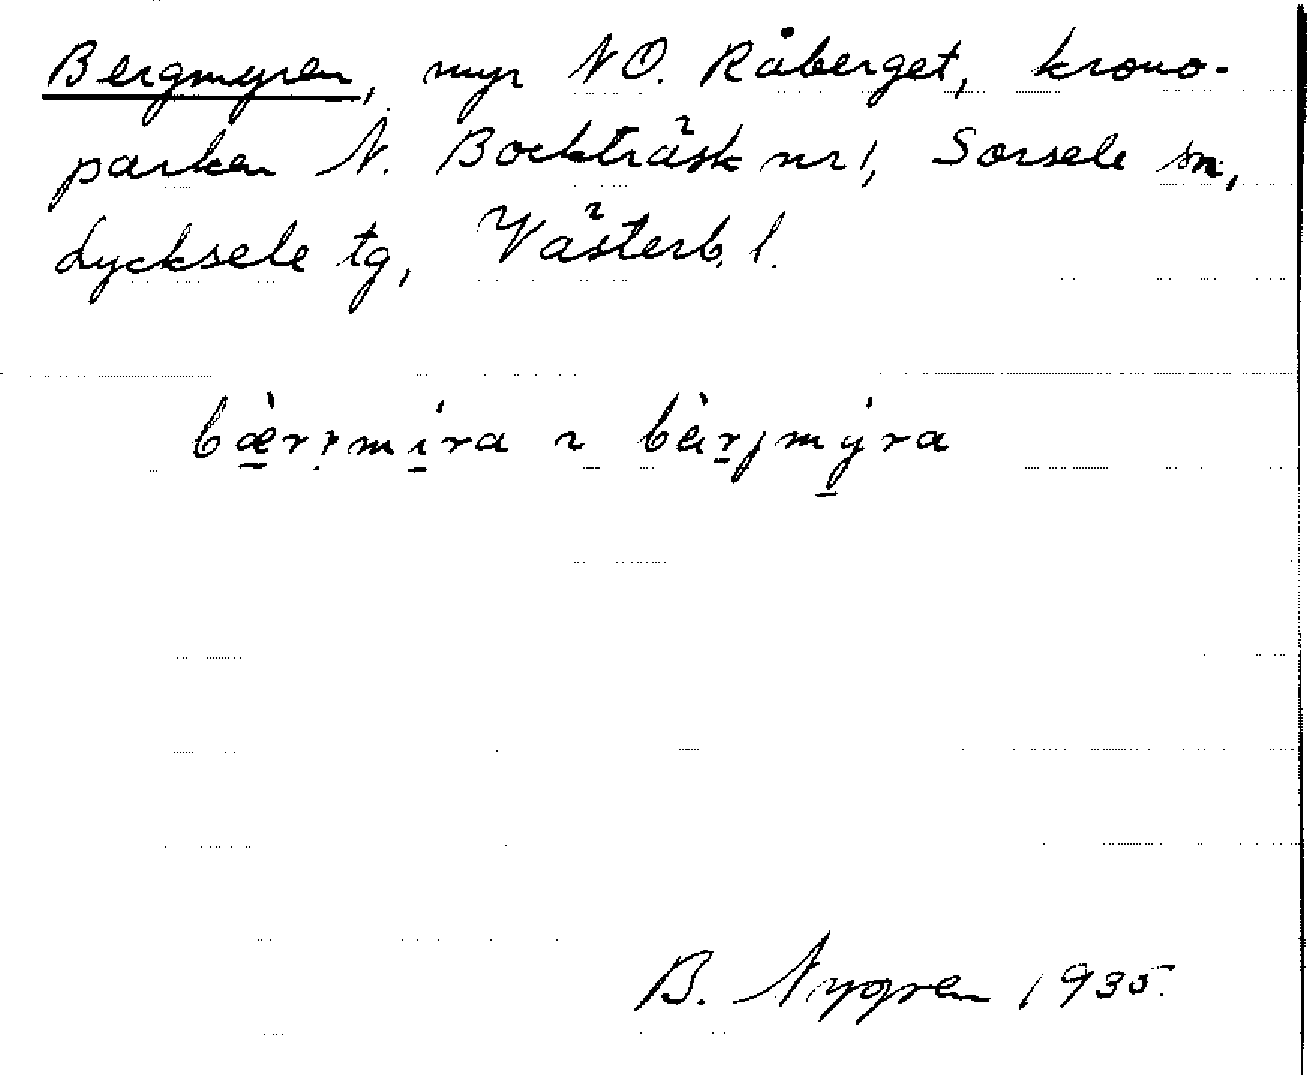 Bergmyren, myr NO. Råberget, krono-
parken N. Bockträsk nr 1, Sorsele sn,
Lycksele tg, Västerb. l.
B. Nygren 1935.